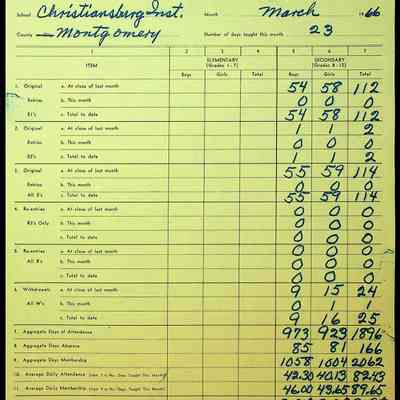 School Christiansberg Inst. Month March 1966
County Montgomery Number of days taught this month 23
1 2 3 4 5 6 7
ITEM ELEMENTARY (Grades 1-7) SECONDARY (Grades 8-12)
Boys Girls Total Boys Girls Total
1. Original a. At close of last month 54 58 112
Entries b. This month 0 0 0
E1's c. Total to date 54 58 112
2. Original a. At close of last month 1 1 2
Entries b. This month 0 0 0
E2's c. Total to date 1 1 2
3. Original a. At close of last month 55 59 114
Entries b. This month 0 0 0
All E's c. Total to date 55 59 114
4. Re-entries a. At close of last month 0 0 0
R3's Only b. This month 0 0 0
c. Total to date 0 0 0
5. Re-entries a. At close of last month 0 0 0
All R's b. This month 0 0 0
c. Total to date 0 0 0
6. Withdrawals a. At close of last month 9 15 24
All W's b. This month 0 1 1
c. Total to date 9 16 25
7. Aggregate Days of Attendance 973 923 1896
8. Aggregate Days Absence 85 81 166
9. Aggregate Days Membership 1058 1004 2062
10. Average Daily Attendance (Item 7 ÷ No. Days Taught This Month) 42.30 40.13 82.43
11. Average Daily Membership (Item 9 ÷ No. Days Taught This Month) 46.00 43.65 89.65